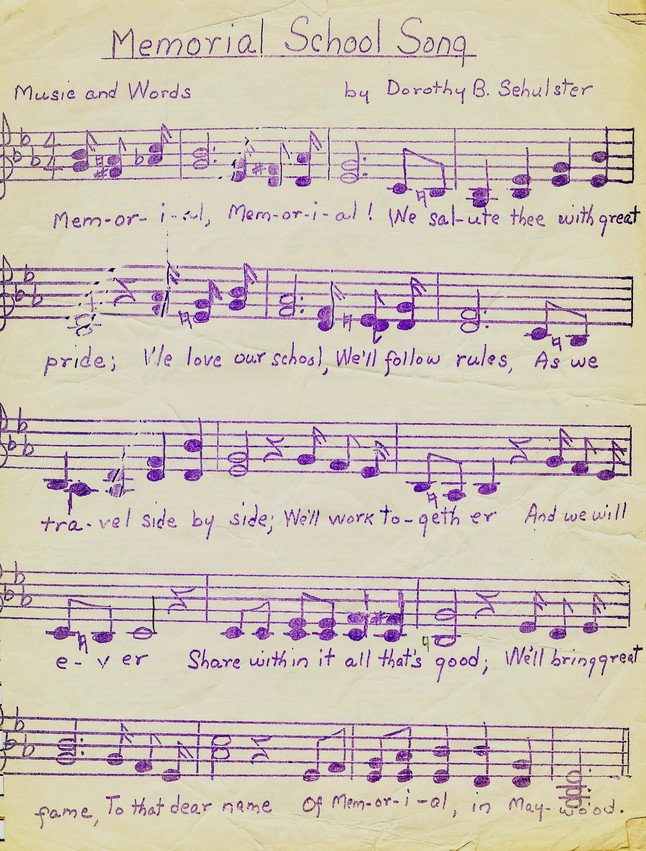 Memorial School Song
Music and Words by Dorothy B. Sehulster
Mem-or-i-al, Mem-or-i-al! We sal-ute thee with great
pride; We'll love our school, We'll follow rules, As we
tra-vel side by side; We'll work to-geth er And we will
e-v er Share with in it all that's good; We'll bring great
fame, To that dear name Of Mem-or-i-al, in May-wood.